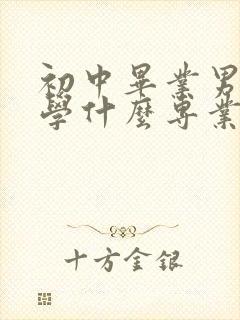 初中畢業男
學什麼專業
十方金銀